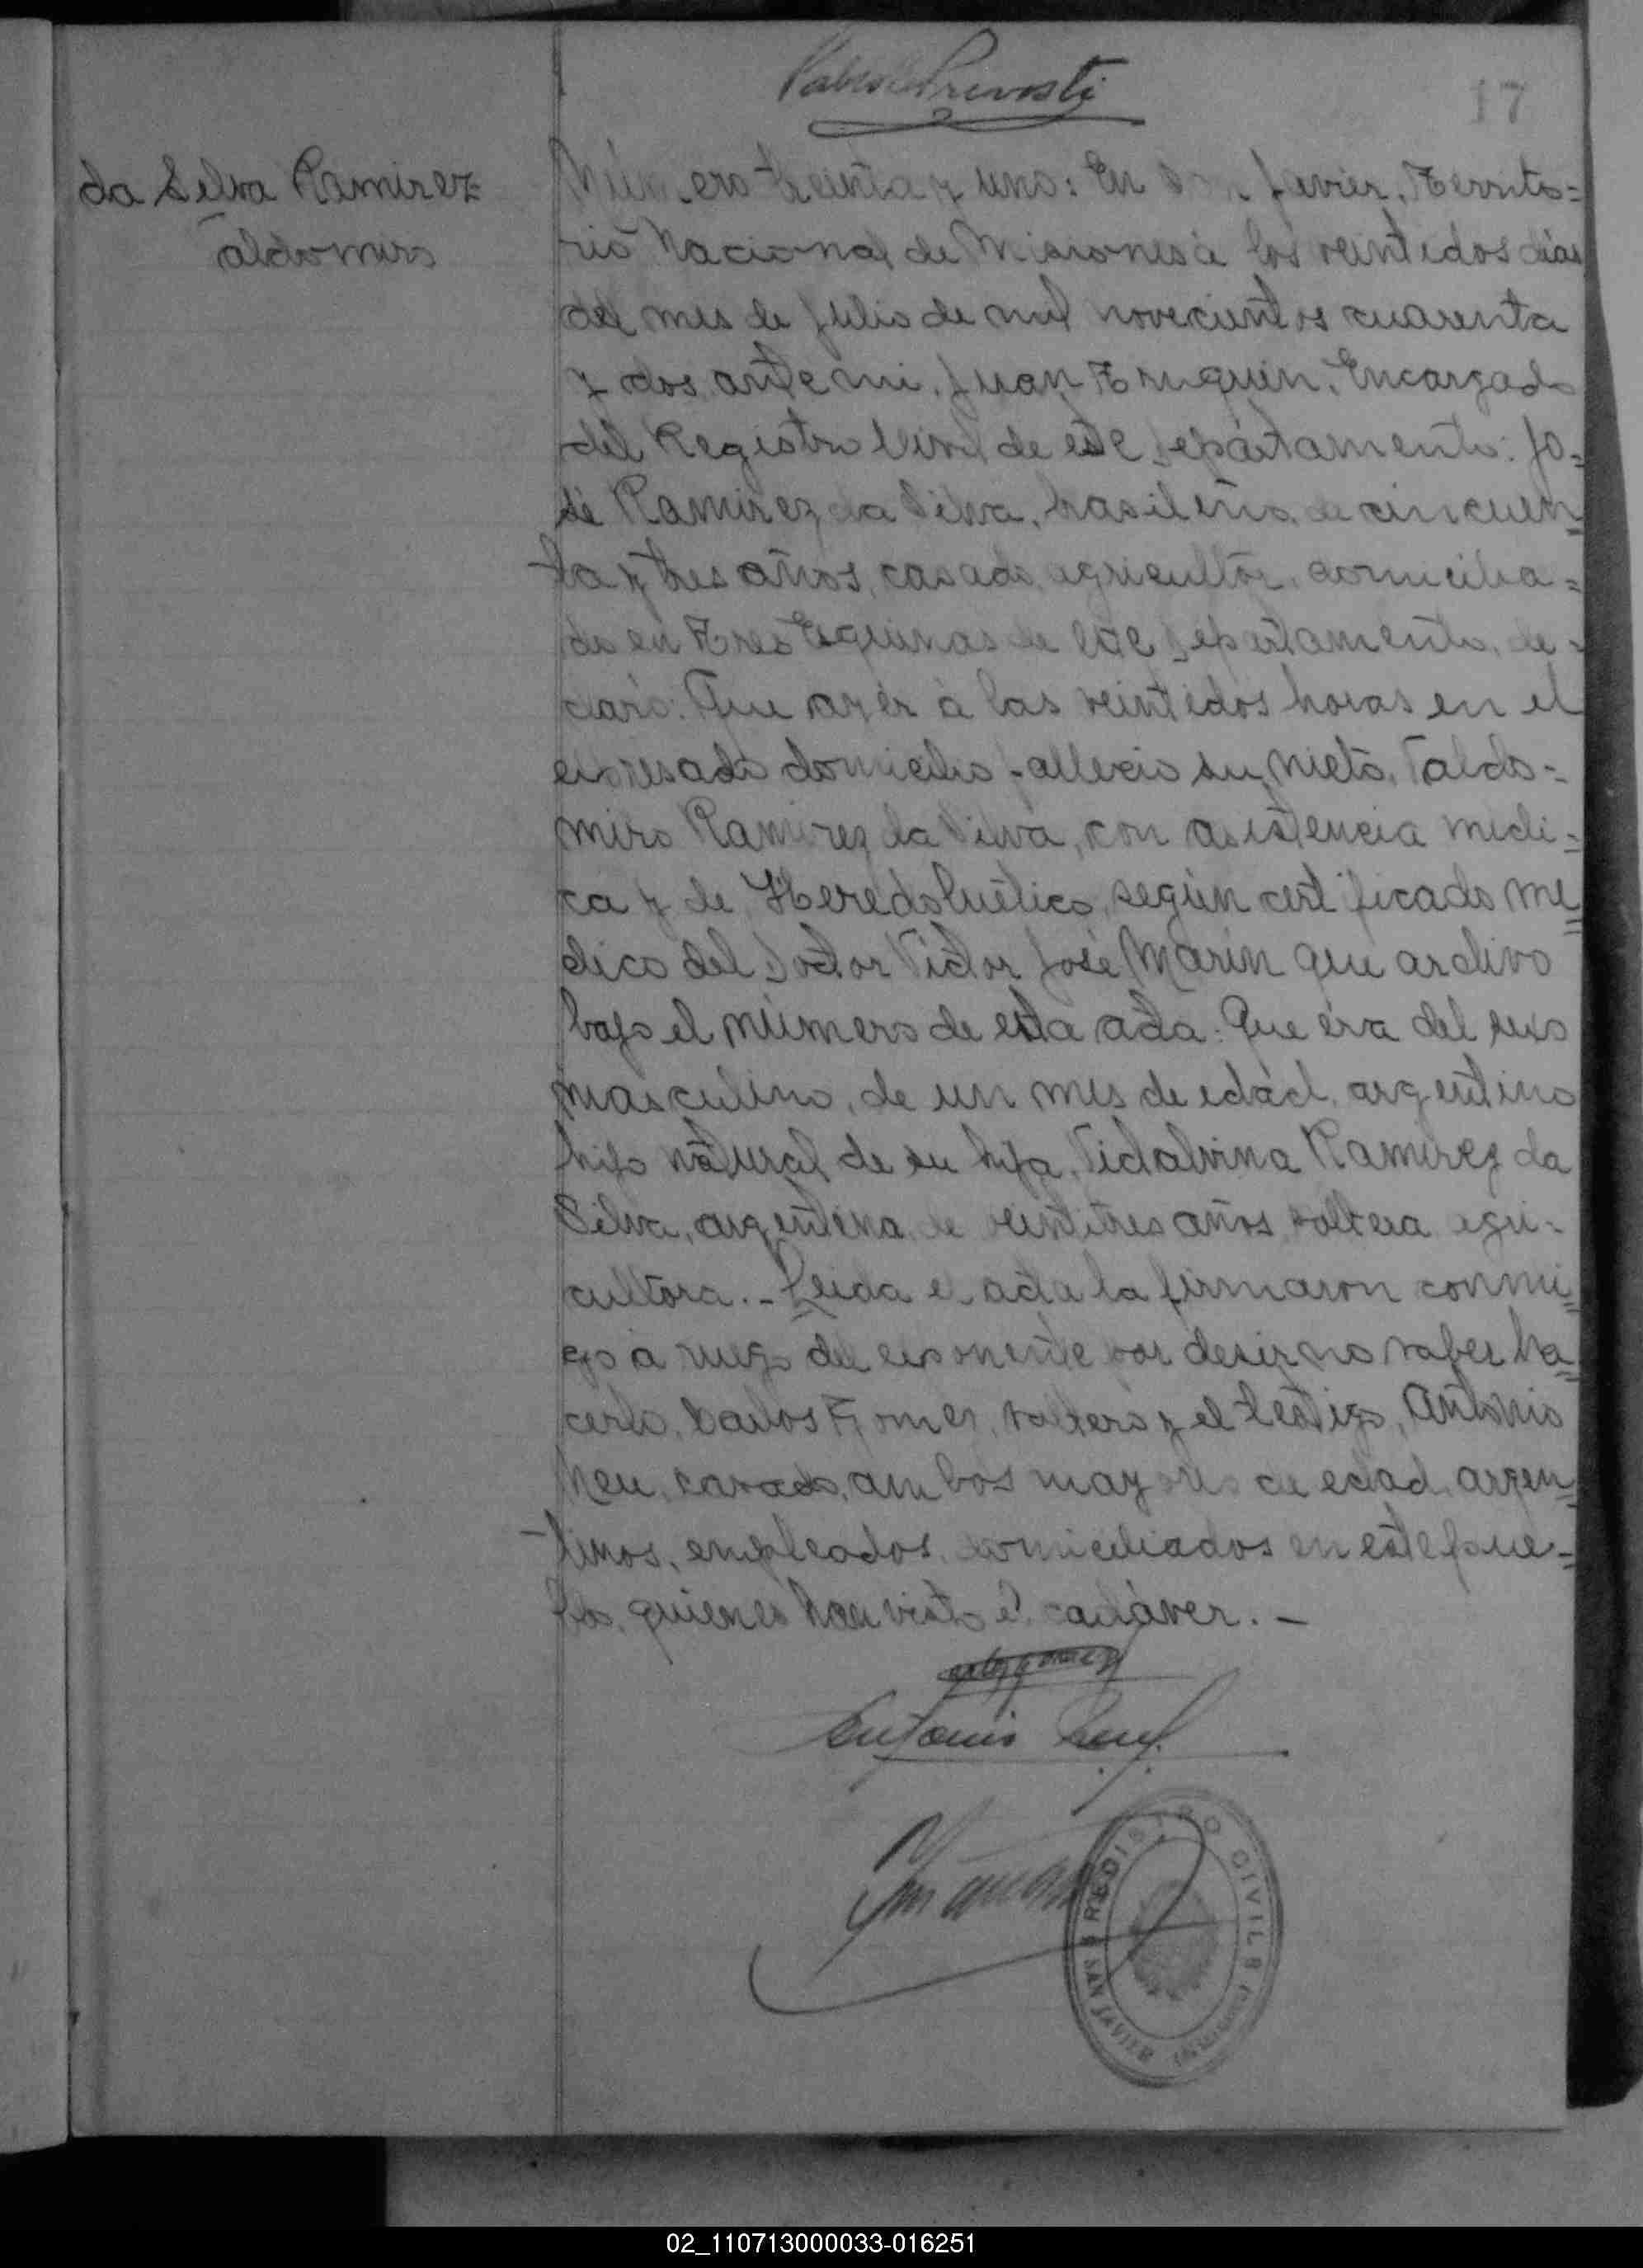 Pablo Prevosti
17
da Silva Ramirez
Valdomiro
Número treinta y uno: En San Javier, Territo=
rio Nacional de Misiones à los veintidos dias
del mes de Julio de mil novecientos cuarenta
y dos, ante mi, Juan Enrquin, Encargado
del Registro Civil de este Departamento: Jo=
sé Ramirez da Silva, brasileño, de cincuen=
ta y tres años, casado, agricultor, domicilia=
do en Tres Esquinas de este Departamento, de=
claró: Que ayer à las veintidos horas en el
expresado domicilio falleció su nieto, Valdo=
miro Ramirez da Silva, con asistencia médi=
ca y de Heredoluético, según certificado mé=
dico del Doctor Victor José Marin que archivo
bajo el número de esta acta: Que éra del sexo
masculino, de un mes de edad, argentino
hijo natural de su hija, Vidalvina Ramirez da
Silva, argentina, de veintitres años, soltera, agri=
cultora.- Leida el acta la firmaron conmi=
go a ruego del exponente por desir no saber ha=
cerlo, Carlos Gomez, soltero y el testigo, Antonio
Neu, casado, ambos mayores de edad, argen=
tinos, empleados, domiciliados en este pue=
blo, quienes han visto el cadáver.-
Carlos Gomez
Antonio Neu
REGISTRO CIVIL
SAN JAVIER (MISIONES)
02_110713000033-016251